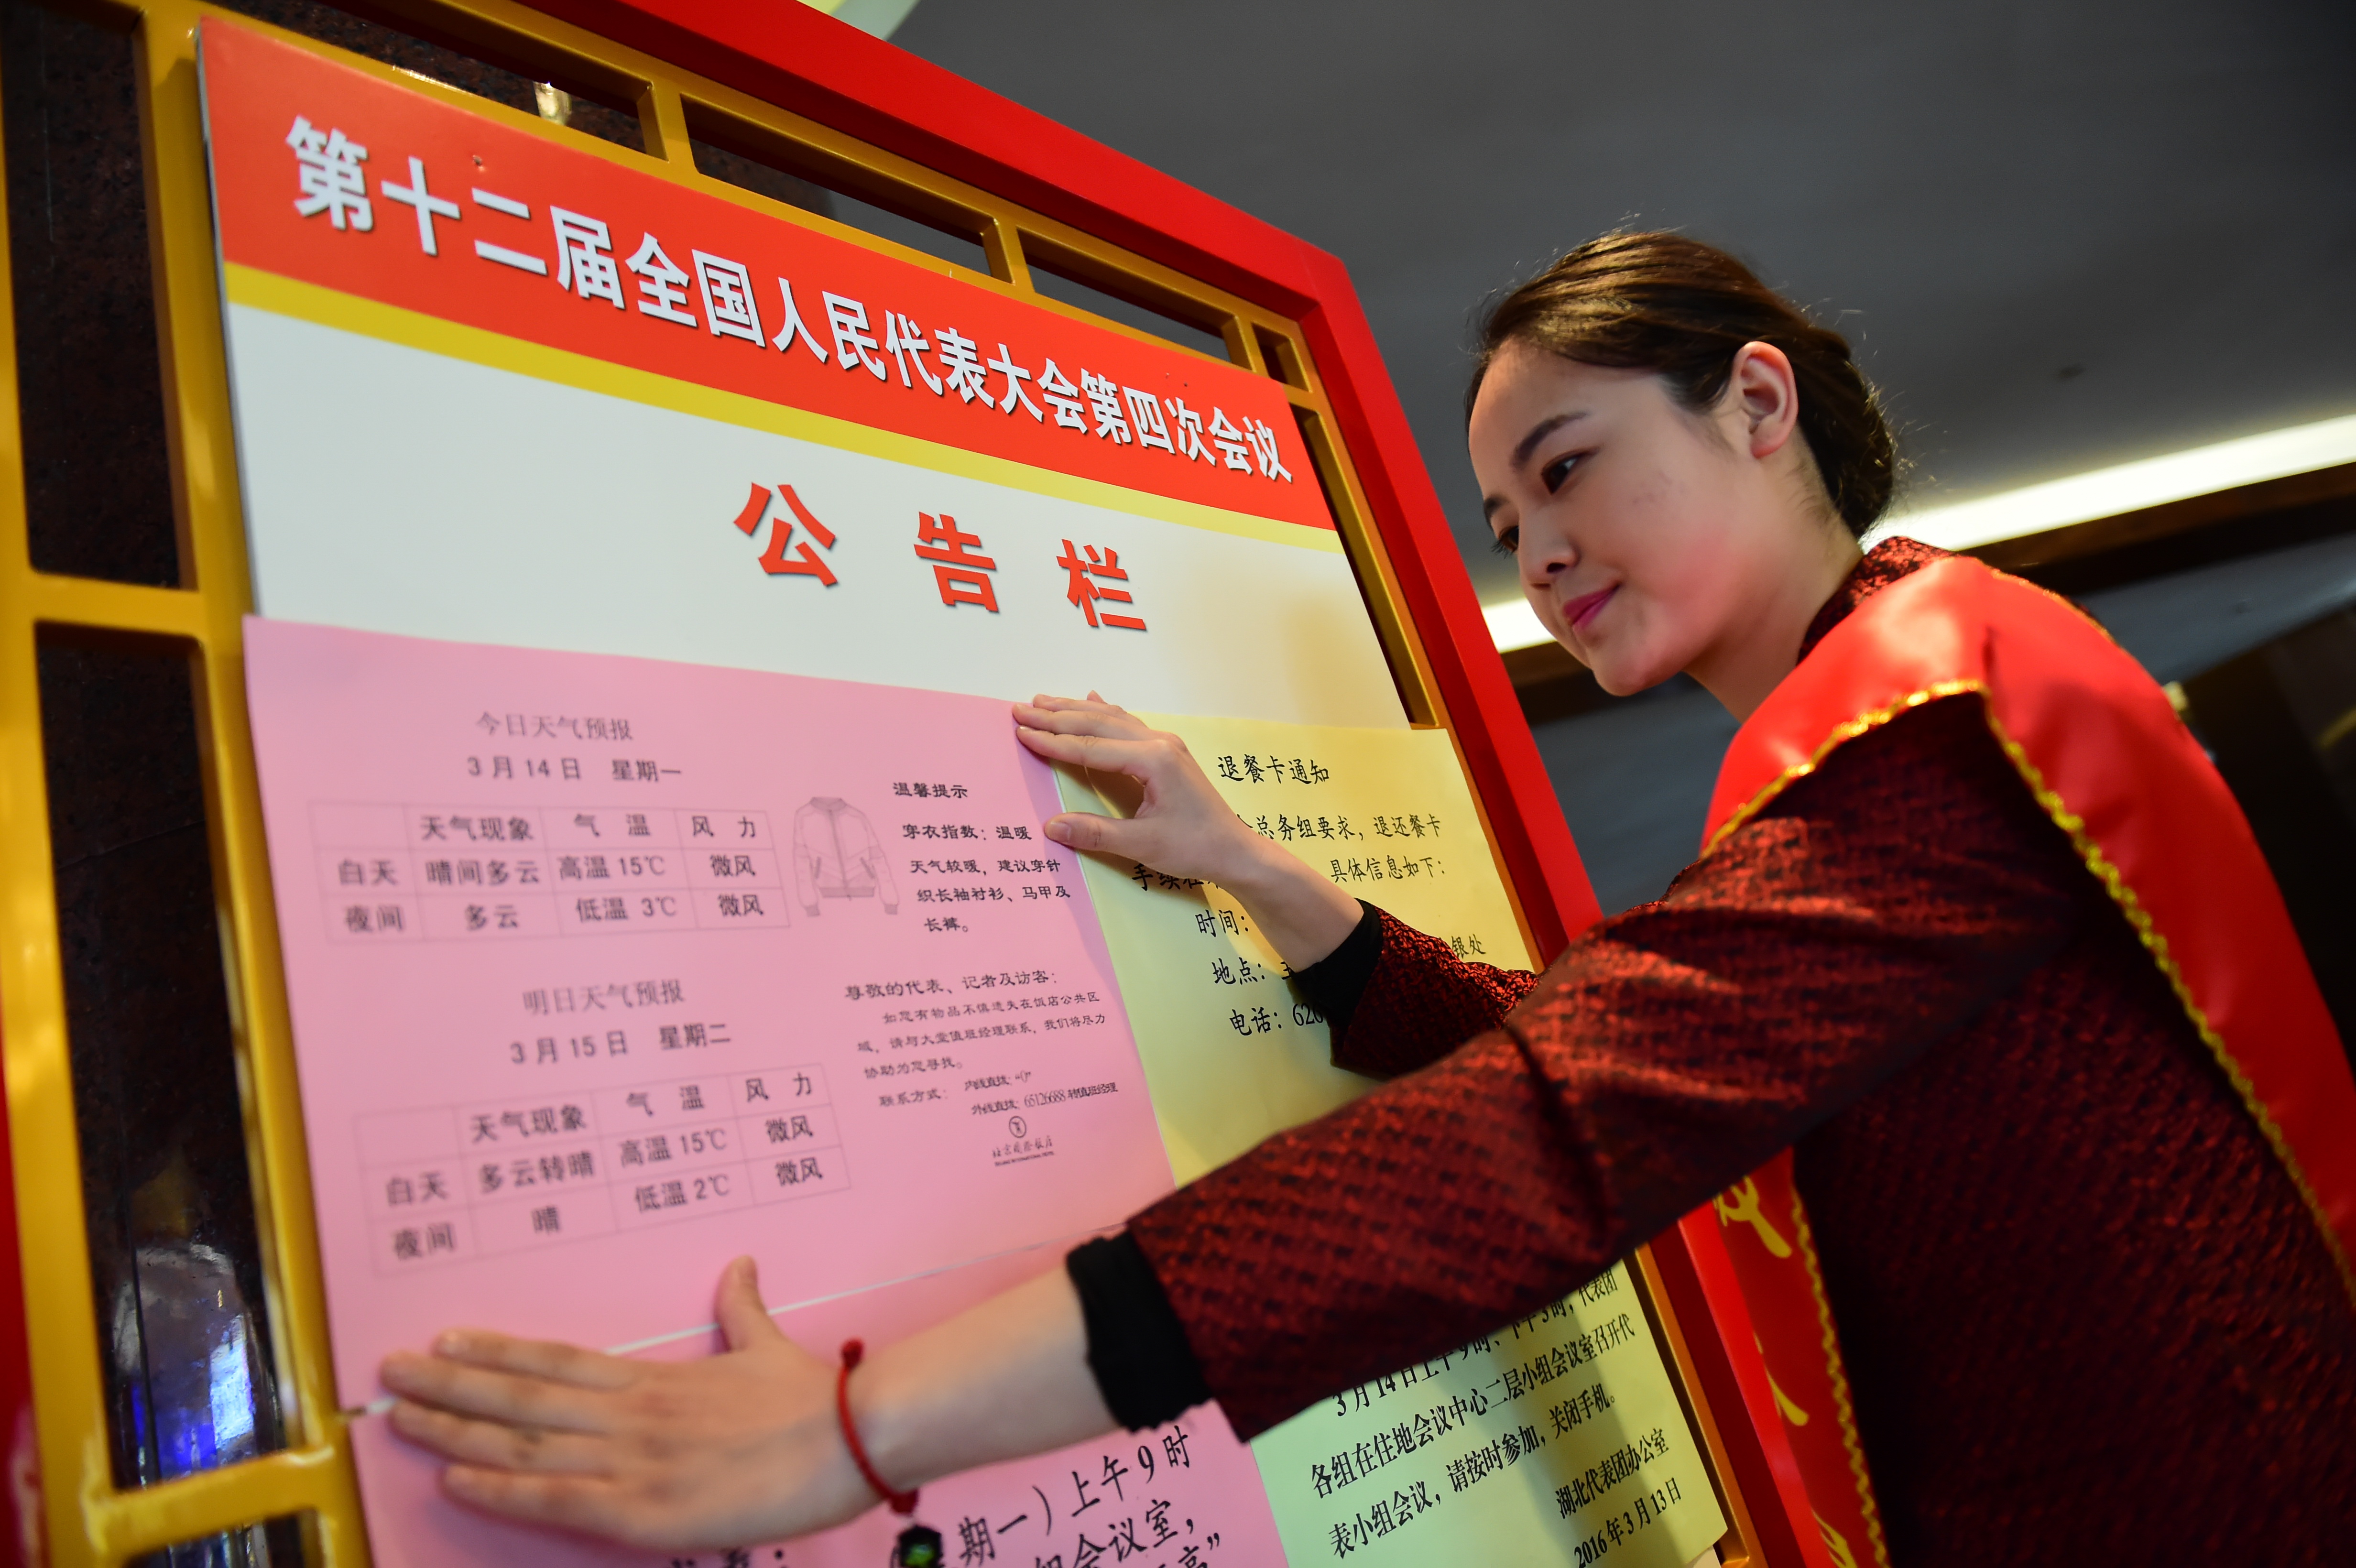 第十二届全国人民代表大会第四次会议
公告栏
今日天气预报
3月14日 星期一
天气现象 气温 风力
白天 晴间多云 高温 15℃ 微风
夜间 多云 低温 3℃ 微风
温馨提示
穿衣指数：温暖
天气较暖，建议穿针
织长袖衬衫、马甲及
长裤。
明日天气预报
3月15日 星期二
天气现象 气温 风力
白天 多云转晴 高温 15℃ 微风
夜间 晴 低温 2℃ 微风
尊敬的代表、记者及访客：
如您有物品不慎遗失在饭店公共区
域，请与大堂值班经理联系，我们将尽力
协助为您寻找。
联系方式： 内线直拨：“0”
外线直拨：65126688转值班经理
北京国际饭店
退餐卡通知
总务组要求，退还餐卡
手续 具体信息如下：
时间：
银处
地点：
电话：620
3月14日上午9时、下午3时，代表团
各组在住地会议中心二层小组会议室召开代
表小组会议，请按时参加，关闭手机。
湖北代表团办公室
2016年3月13日
期一）上午9时
会议室，